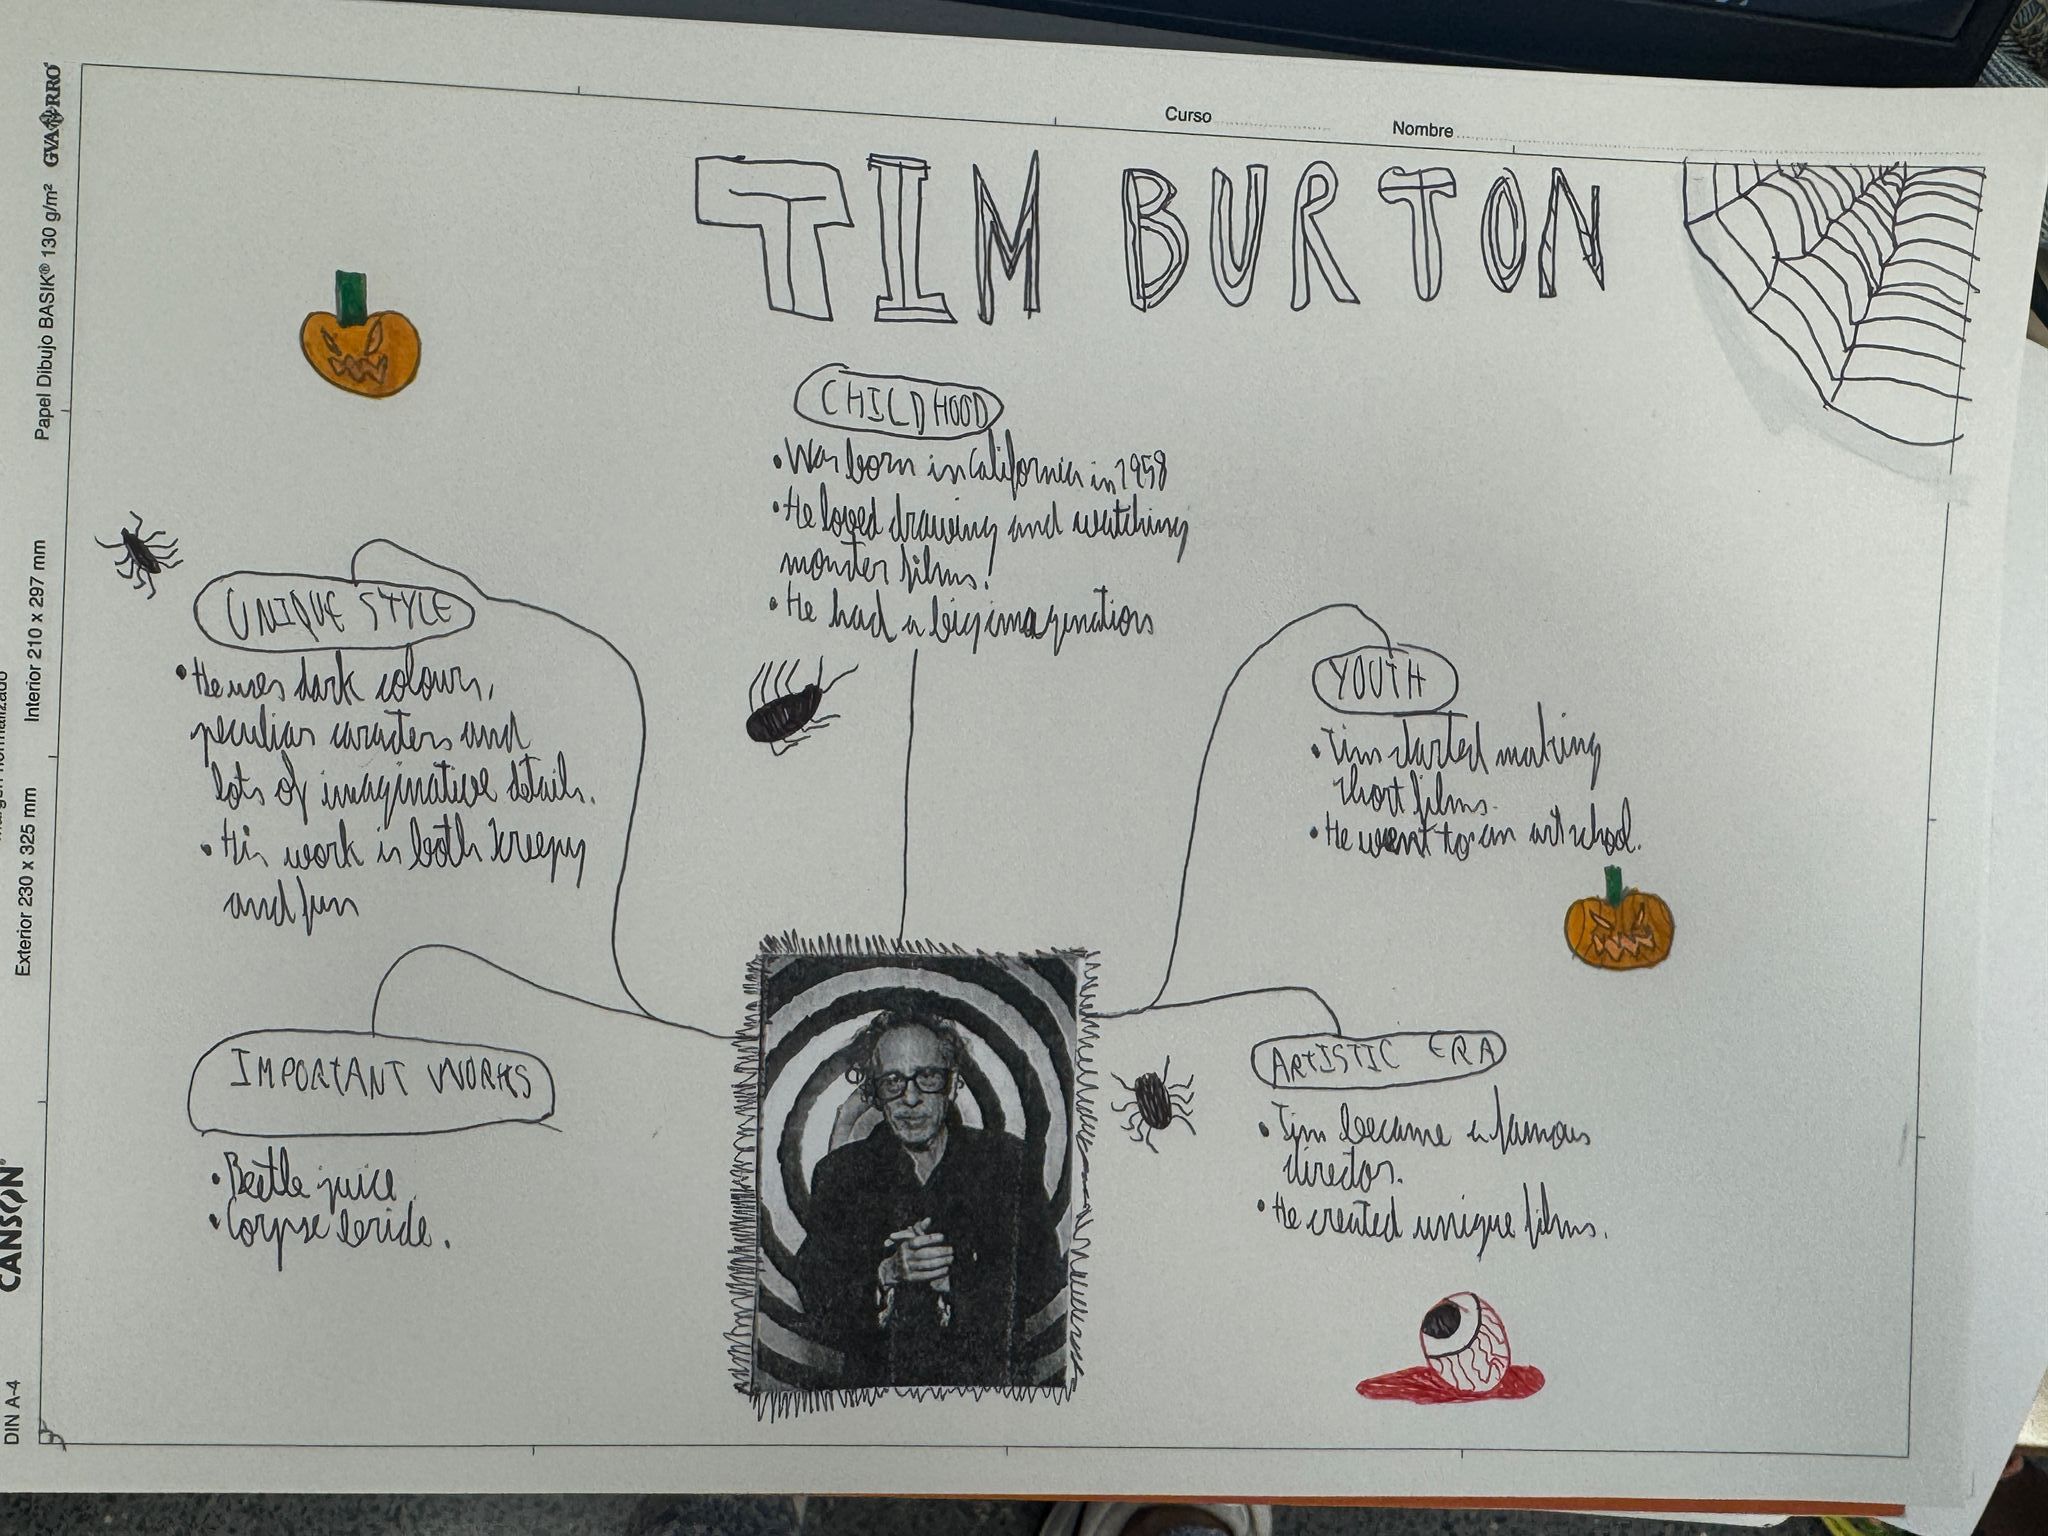 Curso
Nombre
TIM BURTON
CHILDHOOD
• Was born in California in 1958
• He loved drawing and watching
monster films.
• He had a big imagination
UNIQUE STYLE
• He uses dark colours,
peculiar caracters and
lots of imaginative details.
• His work is both kreepy
and fun
YOUTH
• Tim started making
short films.
• He went to an art school.
IMPORTANT WORKS
• Beetle juice
• Corpse bride.
ARTISTIC ERA
• Tim became a famous
director.
• He created unique films.
GVARRO
Papel Dibujo BASIK® 130 g/m²
Interior 210 x 297 mm
Exterior 230 x 325 mm
CANSON
DIN A-4